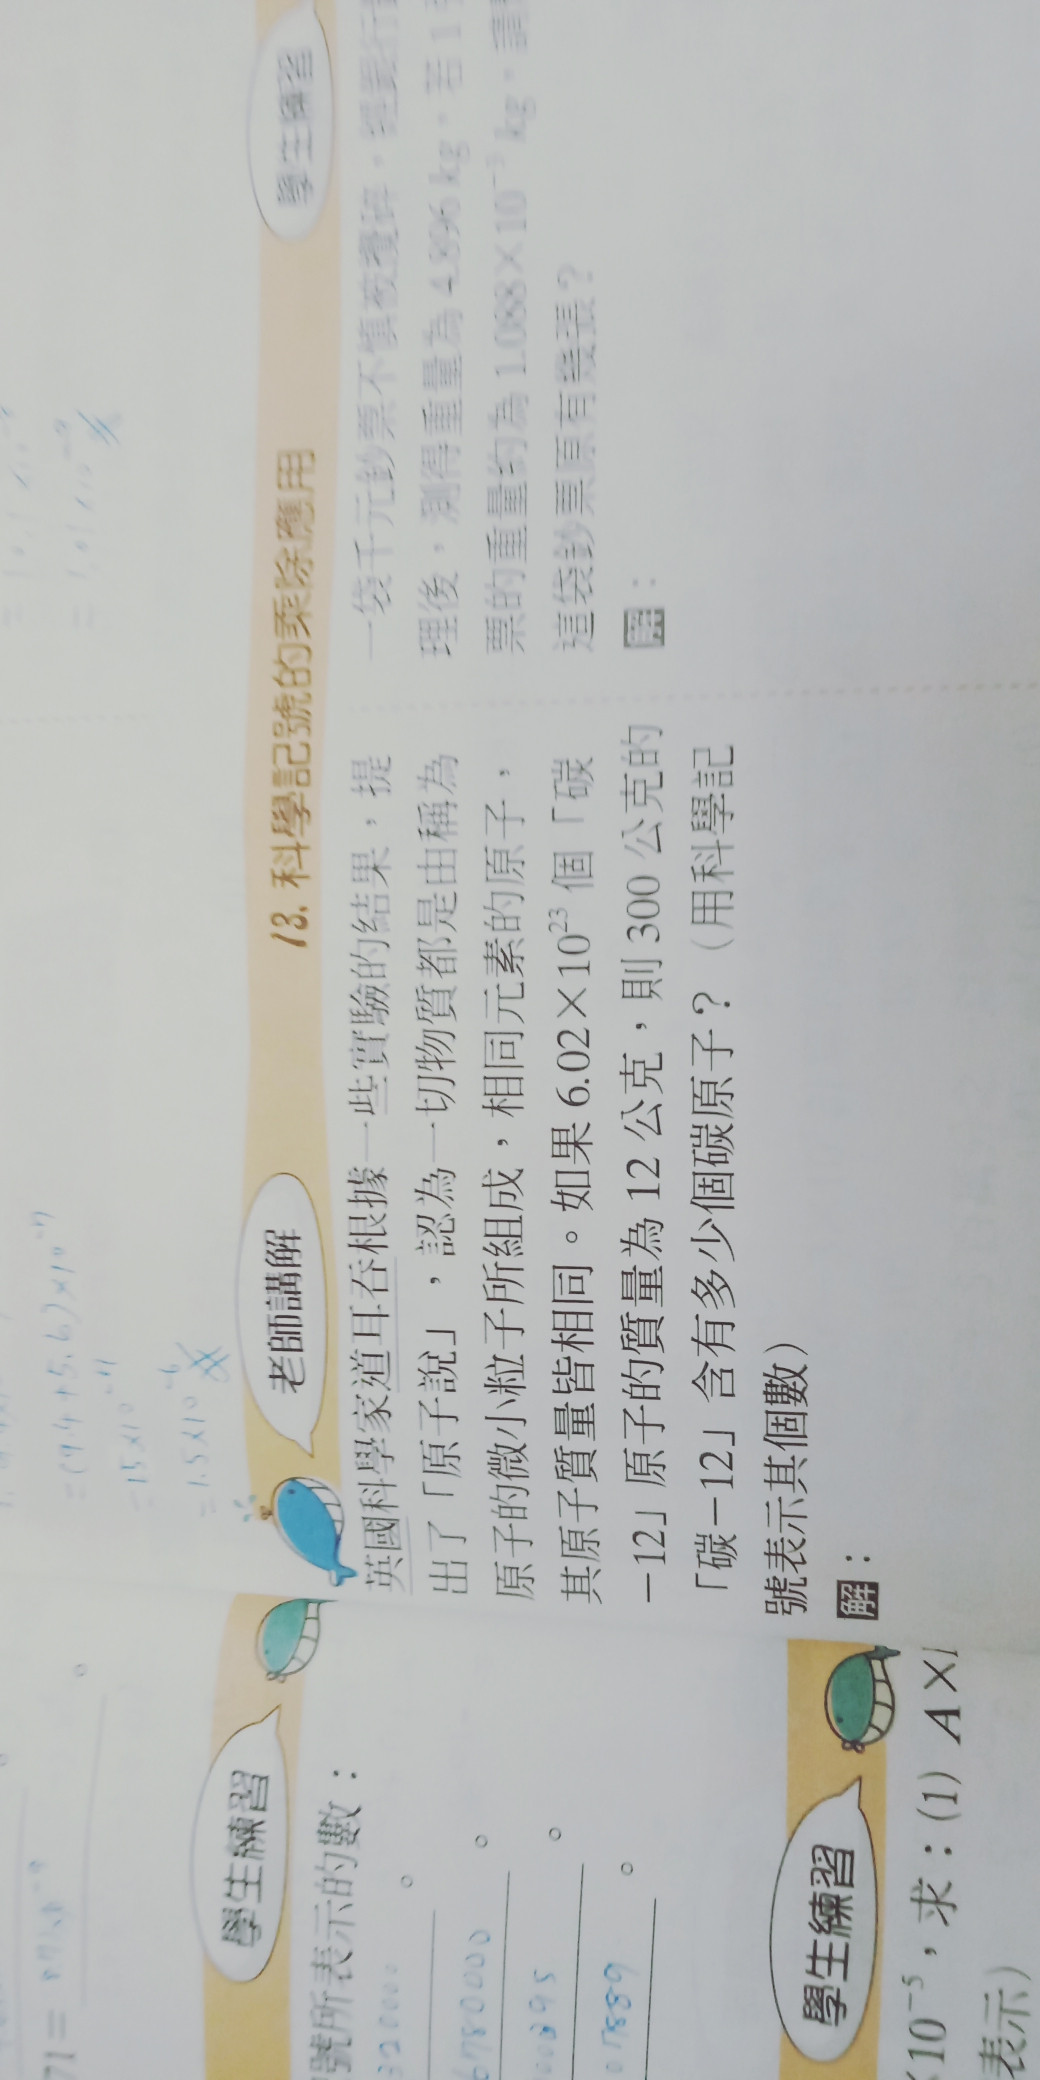 13. 科學記號的乘除應用
老師講解
英國科學家道耳吞根據一些實驗的結果，提
出了「原子說」，認為一切物質都是由稱為
原子的微小粒子所組成，相同元素的原子，
其原子質量皆相同。如果 6.02×10²³ 個「碳
－12」原子的質量為 12 公克，則 300 公克的
「碳－12」含有多少個碳原子？（用科學記
號表示其個數）
解：
學生練習
一袋千元鈔票不慎被攪碎，經銀行
理後，測得重量為 4.896 kg，若 1
票的重量約為 1.088×10⁻³ kg，
這袋鈔票原有幾張？
解：
=(9.4+5.6)×10⁻⁷
=15×10
=1.5×10⁻⁶
71=
學生練習
號所表示的數：
320000。
6780000。
。
。
學生練習
10⁻⁵，求：(1) A×
表示）